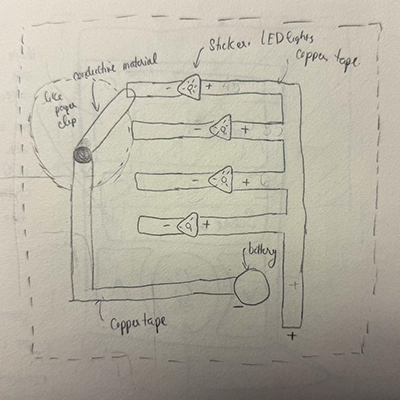 Sticker LED lights
copper tape
conductive material
like
paper
clip
- +
- +
- +
- +
battery
+
-
+
Copper tape